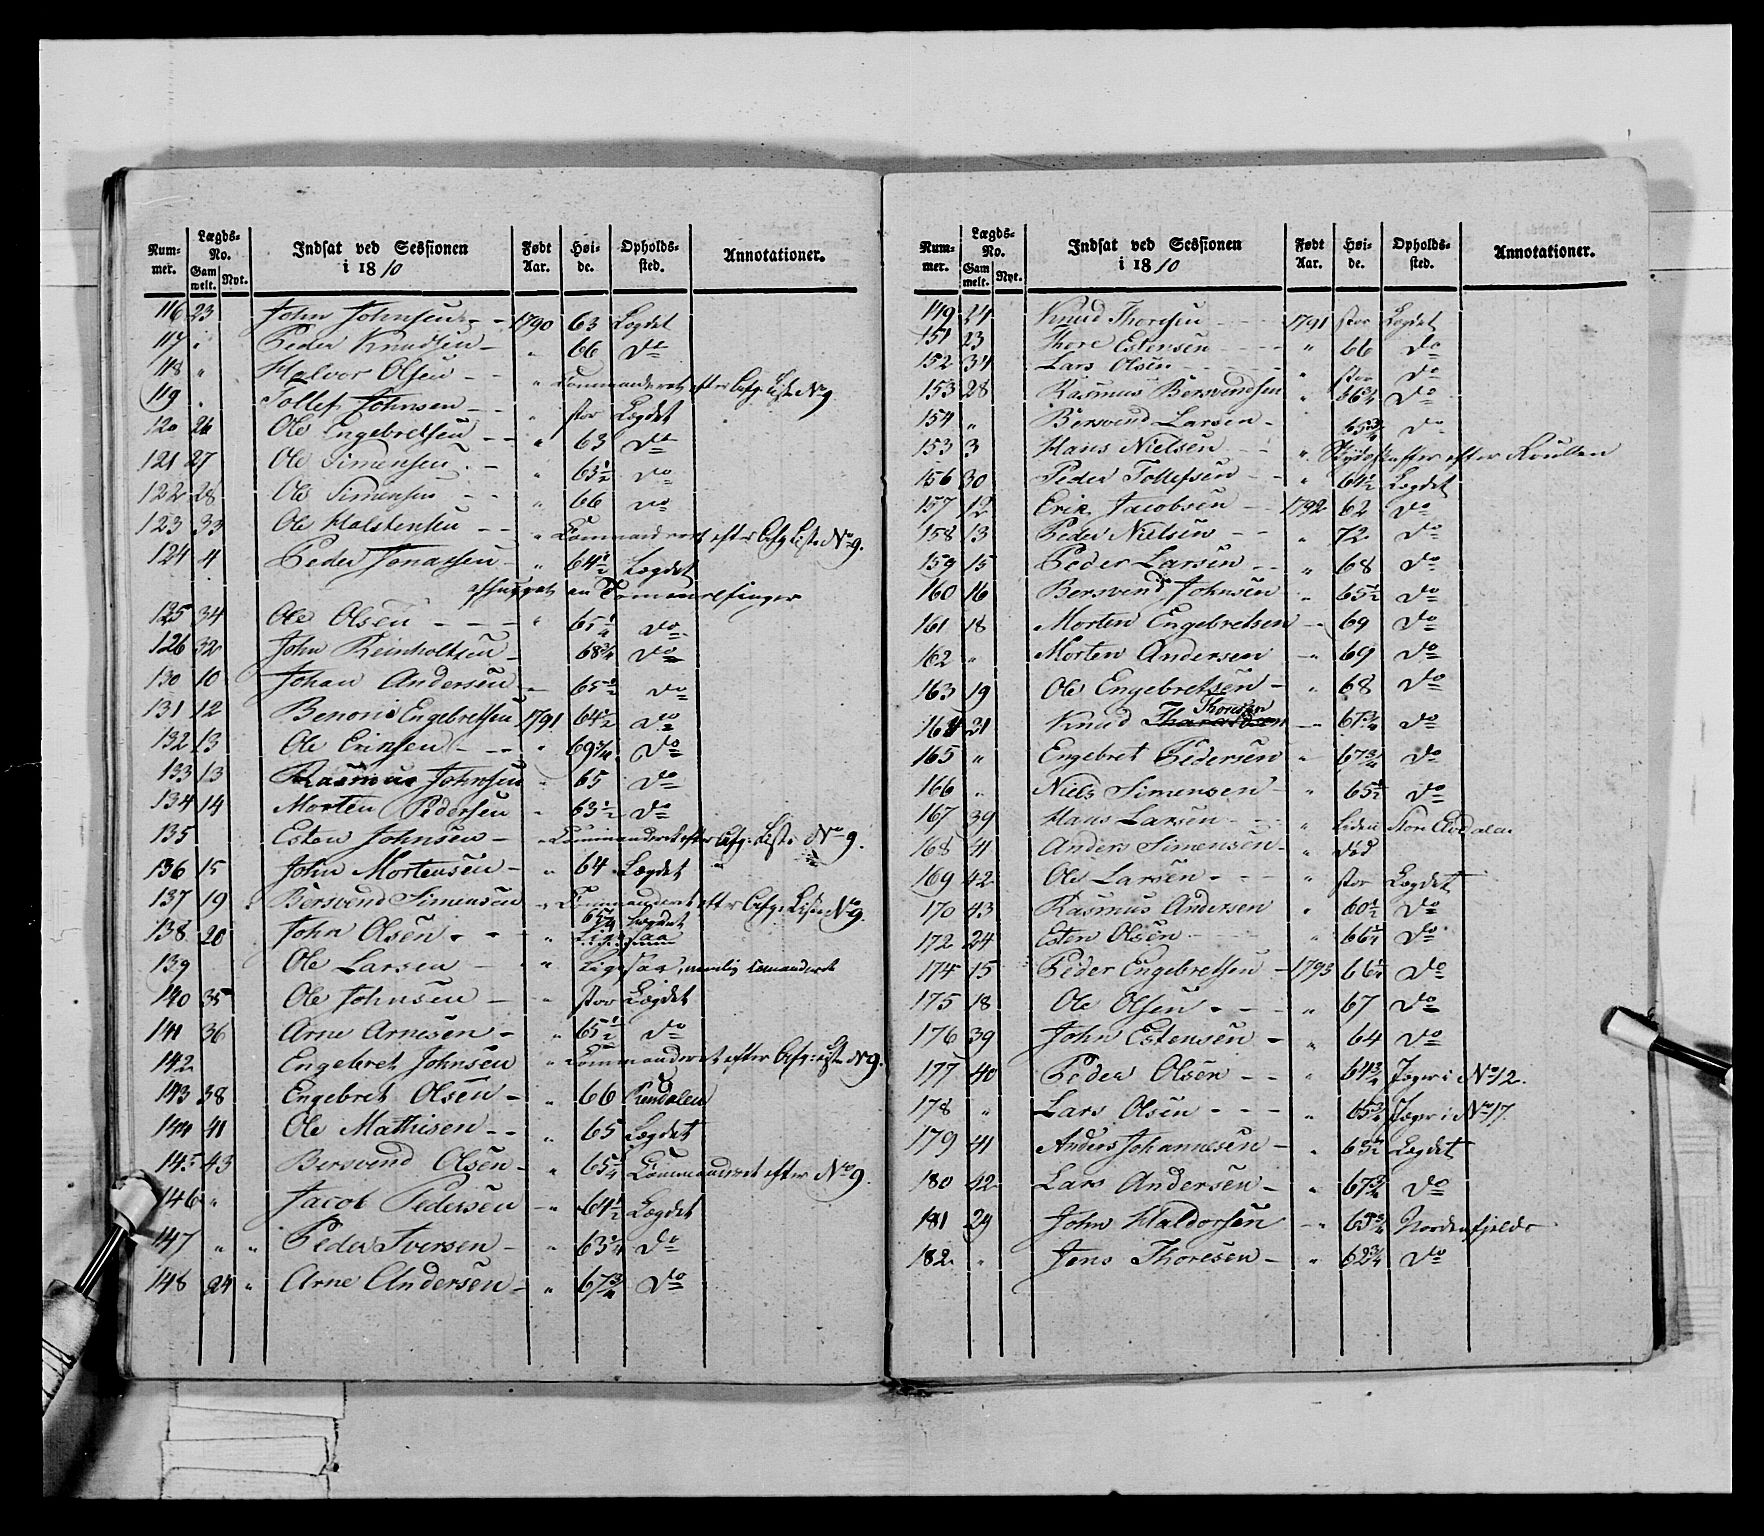 Num-mer. Lægds-No. Gam melt. Nyt. Indsat ved Sessionen i 1810 Født Aar. Høi-de. Opholds-sted. Annotationer.
116 23 John Johnsen - - 1790 63 Lægdet
117 " Peder Knudsen - " 66 Do
118 " Halvor Olsen - - " Commanderet efter Afg: Liste No 9
119 " Tollef Johnsen - - " stor Lægdet
120 26 Ole Engebretsen - - " 63 Do
121 27 Ole Simensen - - " 63½ Do
122 28 Ole Simensen - - " 66 Do
123 33 Ole Halstensen - - " Commanderet efter Afg Liste No 9.
124 4 Peder Jonassen - " 64½ Lægdet
afhugget en Tommelfinger
125 34 Ole Olsen - - - " 65¼ Do
126 32 John Reinholtsen - 68¾ Do
130 10 Johan Andersen - " 65½ Do
131 12 Benoni Engebretsen 1791 64½ Do
132 13 Ole Ericksen - - - " 69¾ Do
133 13 Rasmus Johnsen " 65 Do
134 14 Morten Pedersen " 63½ Do
135 Esten Johnsen - " Commanderet efter Afg: Liste No 9.
136 15 John Mortensen - " 64 Lægdet
137 19 Bersvend Simensen " Commanderet efter Afg: Liste No 9.
138 20 John Olsen - - - " 65¼ Lægdet
Ligesaa
139 Ole Larsen - " Ligesaa, nemlig Comanderet
140 35 Ole Johnsen - " stor Lægdet
141 36 Arne Arnesen - " 65½ Do
142 Engebret Johnsen " Commanderet efter Afg: Liste No 9.
143 38 Engebret Olsen - " 66 Rendalen
144 41 Ole Mathisen - - " 65 Lægdet
145 43 Bersvend Olsen - " 65¼ Commanderet efter No 9.
146 " Jacob Pedersen - " 64½ Lægdet
147 " " Peder Iversen - " 63¼ Do
148 24 " Arne Andersen - " 67¾ Do
Num-mer. Lægds-No. Gam melt. Nyt. Indsat ved Sessionen i 1810 Født Aar. Høi-de. Opholds-sted. Annotationer.
149 24 Knud Thoresen - - - 1791 stor Lægdet
151 23 Thore Estensen - - - " 66 Do
152 34 Lars Olsen - - - - " stor Do
153 28 Rasmus Bersvendsen " 66¾ Do
154 " Bersvend Larsen - 65¾ Do
153 3 Hans Nielsen - - " efter Rullen
156 30 Peder Tollefsen - - " 64½ Lægdet
157 12 Erik Jacobsen - - 1792 62 Do
158 13 Peder Nielsen - - " 72 Do
159 15 Peder Larsen - - " 68 Do
160 16 Bersvend Johnsen " 65½ Do
161 18 Morten Engebretsen - " 69 Do
162 " Morten Andersen - " 69 Do
163 19 Ole Engebretsen - " 68 Do
Thoresen
164 31 Knud Tharaldsen - " 67¾ Do
165 " Engebret Pedersen " 67¾ Do
166 " Niels Simensen - " 65½ Do
167 39 Hans Larsen - - - " Liden Stor Elvdalen
168 41 Anders Simensen - " død
169 42 Ole Larsen - - - " stor Lægdet
170 43 Rasmus Andersen " 60½ Do
172 24 Esten Olsen - - - " 66¼ Do
174 15 Peder Engebretsen - 1793 66¼ Do
175 18 Ole Olsen - - - " 67 Do
176 39 John Estensen - " 64 Do
177 40 Peder Olsen - - " 64¾ Jæger i No 12.
178 " Lars Olsen - - - " 65¾ Jæger i No 17.
179 41 Anders Johannesen - " 63½ Lægdet
180 42 Lars Andersen - " 67¾ Do
181 29 John Haldorsen - " 65¾ Nordenfjelds
182 " Jens Thoresen - " 62¾ Do